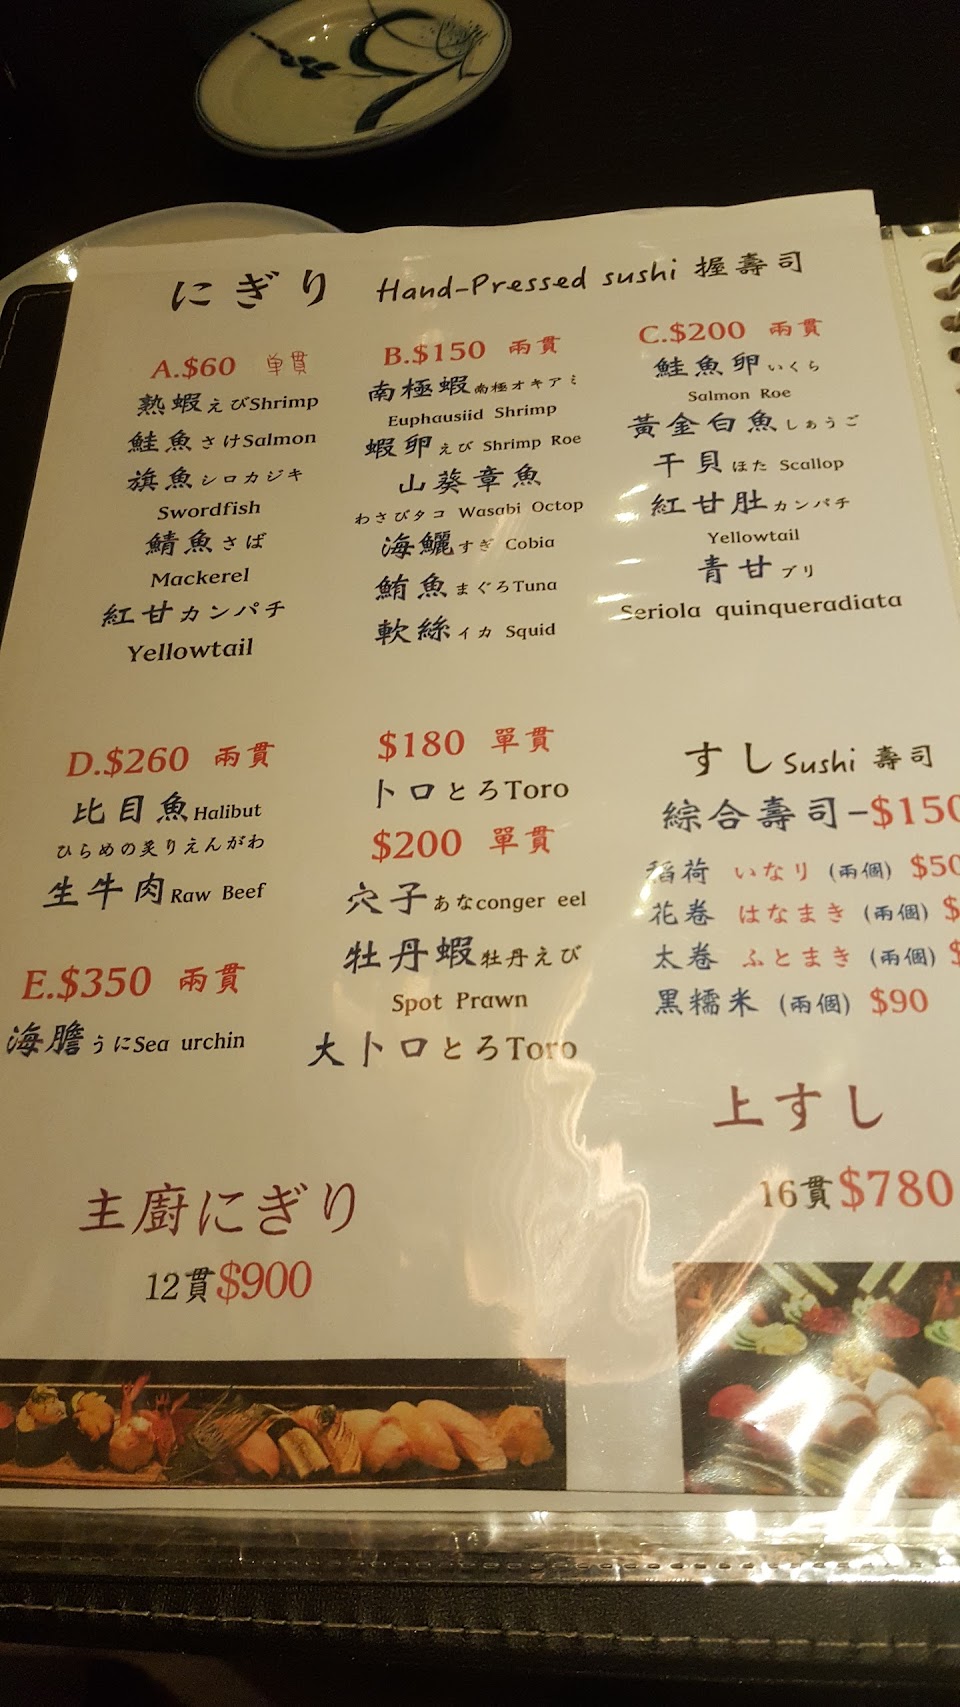 にぎり Hand-Pressed sushi 握壽司
A.$60 單貫
熟蝦えびShrimp
鮭魚さけSalmon
旗魚シロカジキ
Swordfish
鯖魚さば
Mackerel
紅甘カンパチ
Yellowtail
B.$150 兩貫
南極蝦南極オキアミ
Euphausiid Shrimp
蝦卵えび Shrimp Roe
山葵章魚
わさびタコ Wasabi Octop
海鱺すぎ Cobia
鮪魚まぐろTuna
軟絲イカ Squid
C.$200 兩貫
鮭魚卵いくら
Salmon Roe
黃金白魚しぁうご
干貝ほた Scallop
紅甘肚カンパチ
Yellowtail
青甘ブリ
Seriola quinqueradiata
D.$260 兩貫
比目魚Halibut
ひらめの炙りえんがわ
生牛肉Raw Beef
E.$350 兩貫
海膽うにSea urchin
$180 單貫
トロとろToro
$200 單貫
穴子あなconger eel
牡丹蝦牡丹えび
Spot Prawn
大トロとろToro
すしSushi 壽司
綜合壽司-$150
稻荷 いなり (兩個) $50
花卷 はなまき (兩個) $
太卷 ふとまき (兩個) $
黑糯米 (兩個) $90
上すし
16貫$780
主廚にぎり
12貫$900